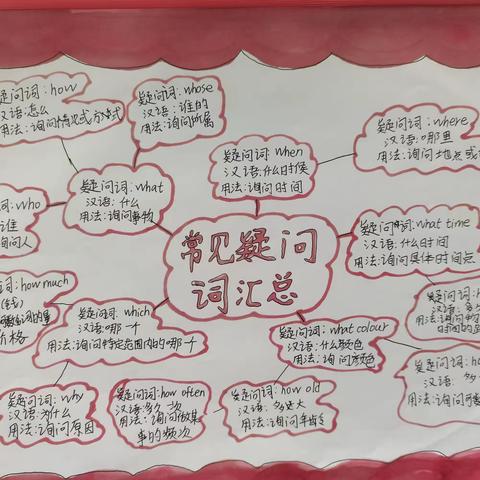 疑问词:how
汉语:怎么
用法:询问情况或方式
疑问词:whose
汉语:谁的
用法:询问所属
疑问词:when
汉语:什么时候
用法:询问时间
疑问词:where
汉语:哪里
用法:询问地点或
疑问词:what
汉语:什么
用法:询问事物
问词:who
谁
询问人
常见疑问
词汇总
疑问词:what time
汉语:什么时间
用法:询问具体时间点
词:how much
价格
疑问词:which
汉语:哪一个
用法:询问特定范围内的哪一个
疑问词:what colour
汉语:什么颜色
用法:询问颜色
疑问词:
汉语:多
用法:询问物
时间的
疑问词:why
汉语:为什么
用法:询问原因
疑问词:how often
汉语:多久一次
用法:询问做某
事的频次
疑问词:how old
汉语:多大
用法:询问年龄
疑问词:ho
汉语:多
用法:询问可数